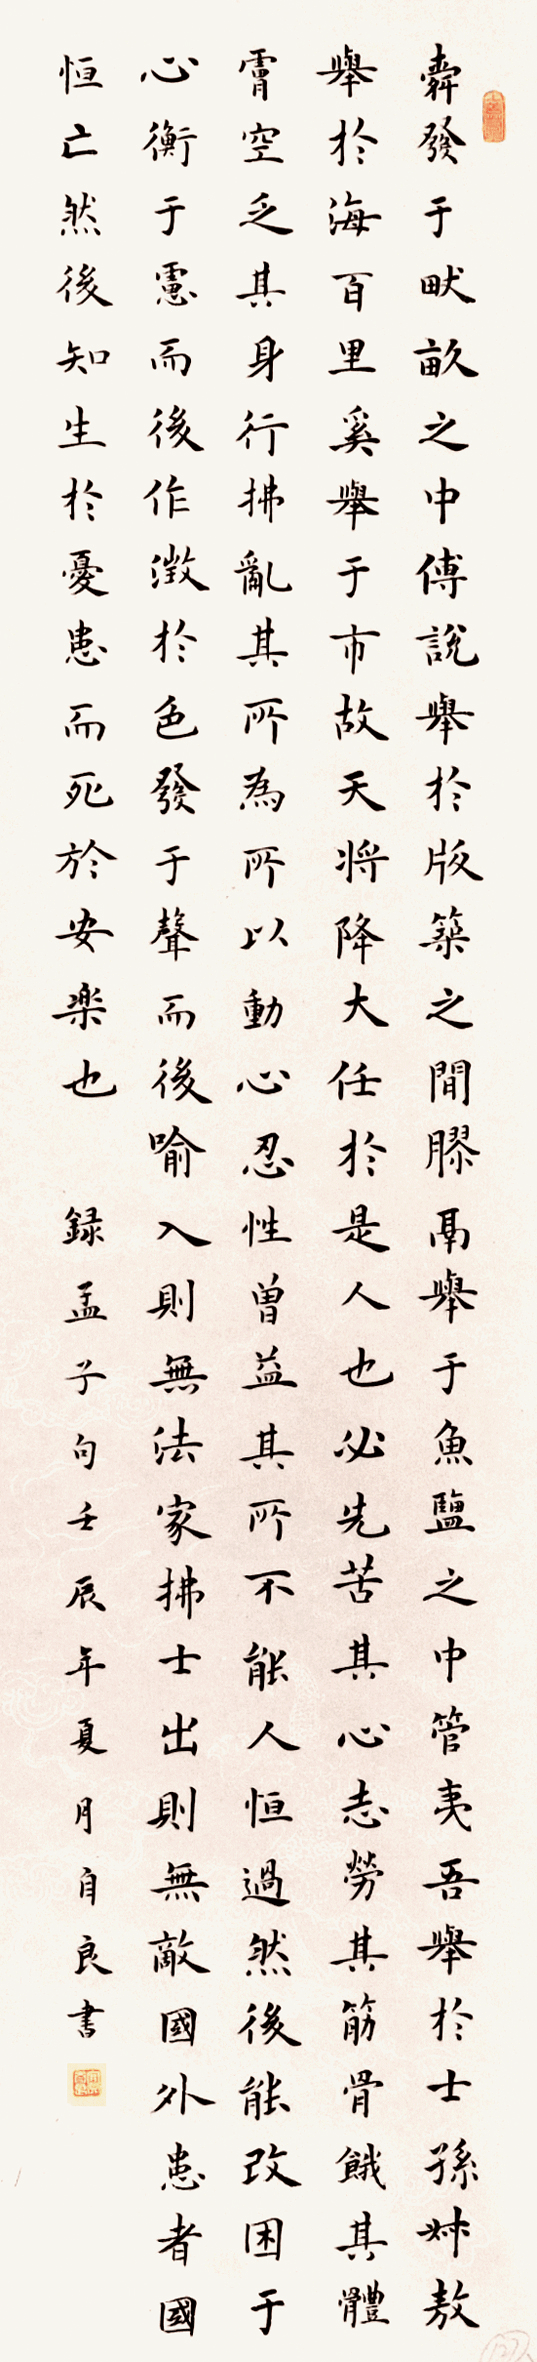 舜發于畎畝之中傅說舉於版築之間膠鬲舉于魚鹽之中管夷吾舉於士孫叔敖
舉於海百里奚舉于市故天将降大任於是人也必先苦其心志勞其筋骨餓其體
膚空乏其身行拂亂其所為所以動心忍性曾益其所不能人恒過然後能改困于
心衡于慮而後作徵於色發于聲而後喻入則無法家拂士出則無敵國外患者國
恒亡然後知生於憂患而死於安楽也 録孟子句壬辰年夏月自良書